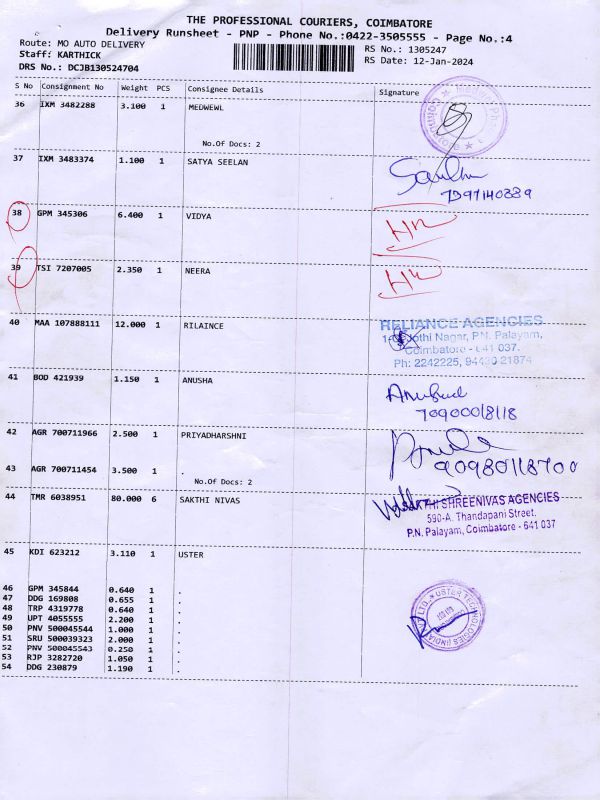 THE PROFESSIONAL COURIERS, COIMBATORE
Delivery Runsheet - PNP - Phone No.:0422-3505555 - Page No.:4
Route: MO AUTO DELIVERY RS No.: 1305247
Staff: KARTHICK RS Date: 12-Jan-2024
DRS No.: DCJB130524704
S No Consignment No Weight PCS Consignee Details Signature
36 IXM 3482288 3.100 1 MEDWEWL
No.Of Docs: 2
37 IXM 3483374 1.100 1 SATYA SEELAN
38 GPM 345306 6.400 1 VIDYA
39 TSI 7207005 2.350 1 NEERA
40 MAA 107888111 12.000 1 RILAINCE
RELIANCE AGENCIES
Jothi Nagar, P.N. Palayam,
Coimbatore - 641 037.
Ph: 2242225, 94430 21874
41 BOD 421939 1.150 1 ANUSHA
42 AGR 700711966 2.500 1 PRIYADHARSHNI
90980118700
43 AGR 700711454 3.500 1
No.Of Docs: 2
44 TMR 6038951 80.000 6 SAKTHI NIVAS
SHREENIVAS AGENCIES
590-A. Thandapani Street.
P.N. Palayam, Coimbatore - 641 037
45 KDI 623212 3.110 1 USTER
46 GPM 345844 0.640 1 .
47 DDG 169808 0.655 1 .
48 TRP 4319778 0.640 1 .
49 UPT 4055555 2.200 1 .
50 PNV 500045544 1.000 1 .
51 SRU 500039323 2.000 1 .
52 PNV 500045543 0.250 1 .
53 RJP 3282720 1.050 1 .
54 DDG 230879 1.190 1 .
USTER TECHNOLOGIES (INDIA)